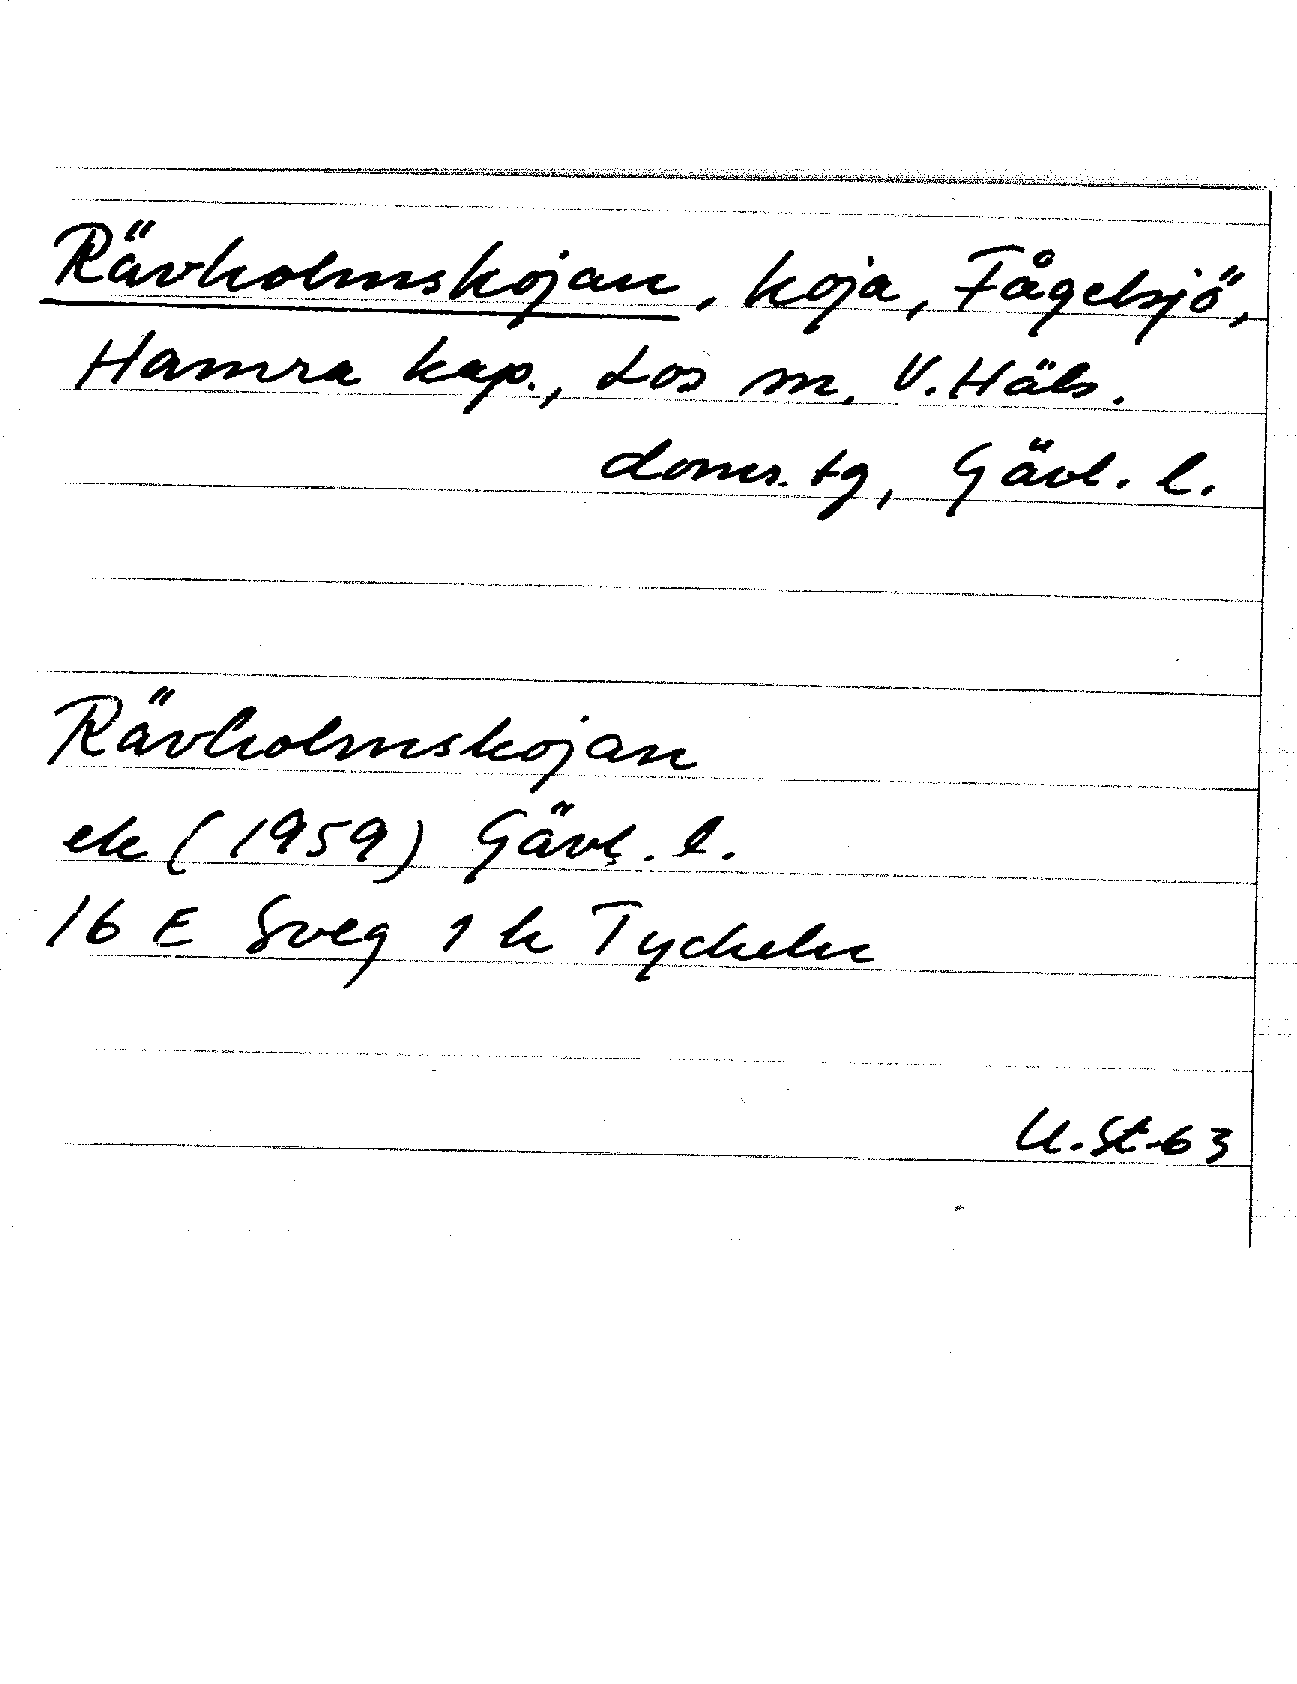 Rävholmskojan, koja, Fågelsjö,
Hamra kap., Los sn, V. Häls.
doms. tg, Gävl. l.
Rävholmskojan
ek (1959) Gävl. l.
16 E Sveg 1 h Tyckeln
U. St-63